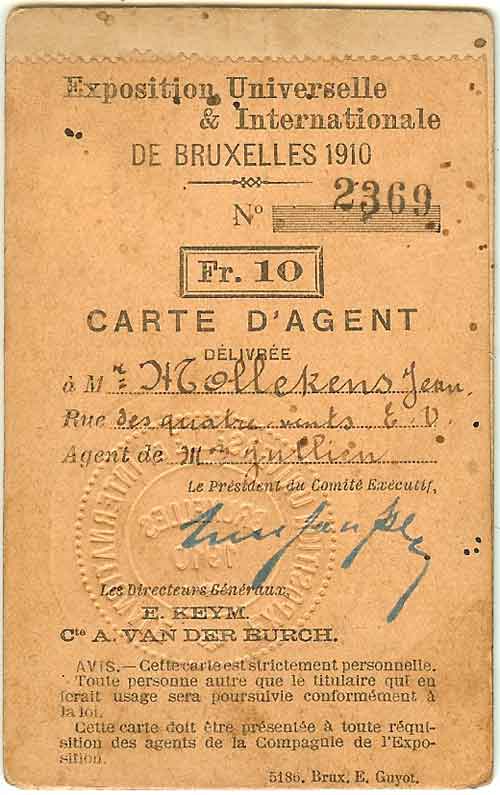 Exposition Universelle
& Internationale
DE BRUXELLES 1910
N° 2369
Fr. 10
CARTE D'AGENT
DÉLIVRÉE
à Mr Mollekens Jean.
Rue des quatre vents E. V.
Agent de Mon Jullien
Le Président du Comité Exécutif,
Les Directeurs Généraux,
E. KEYM.
Cte A. VAN DER BURCH.
AVIS. — Cette carte est strictement personnelle.
Toute personne autre que le titulaire qui en
ferait usage sera poursuivie conformément à
la loi.
Cette carte doit être présentée à toute réqui-
sition des agents de la Compagnie de l'Expo-
sition.
5186. Brux. E. Guyot.